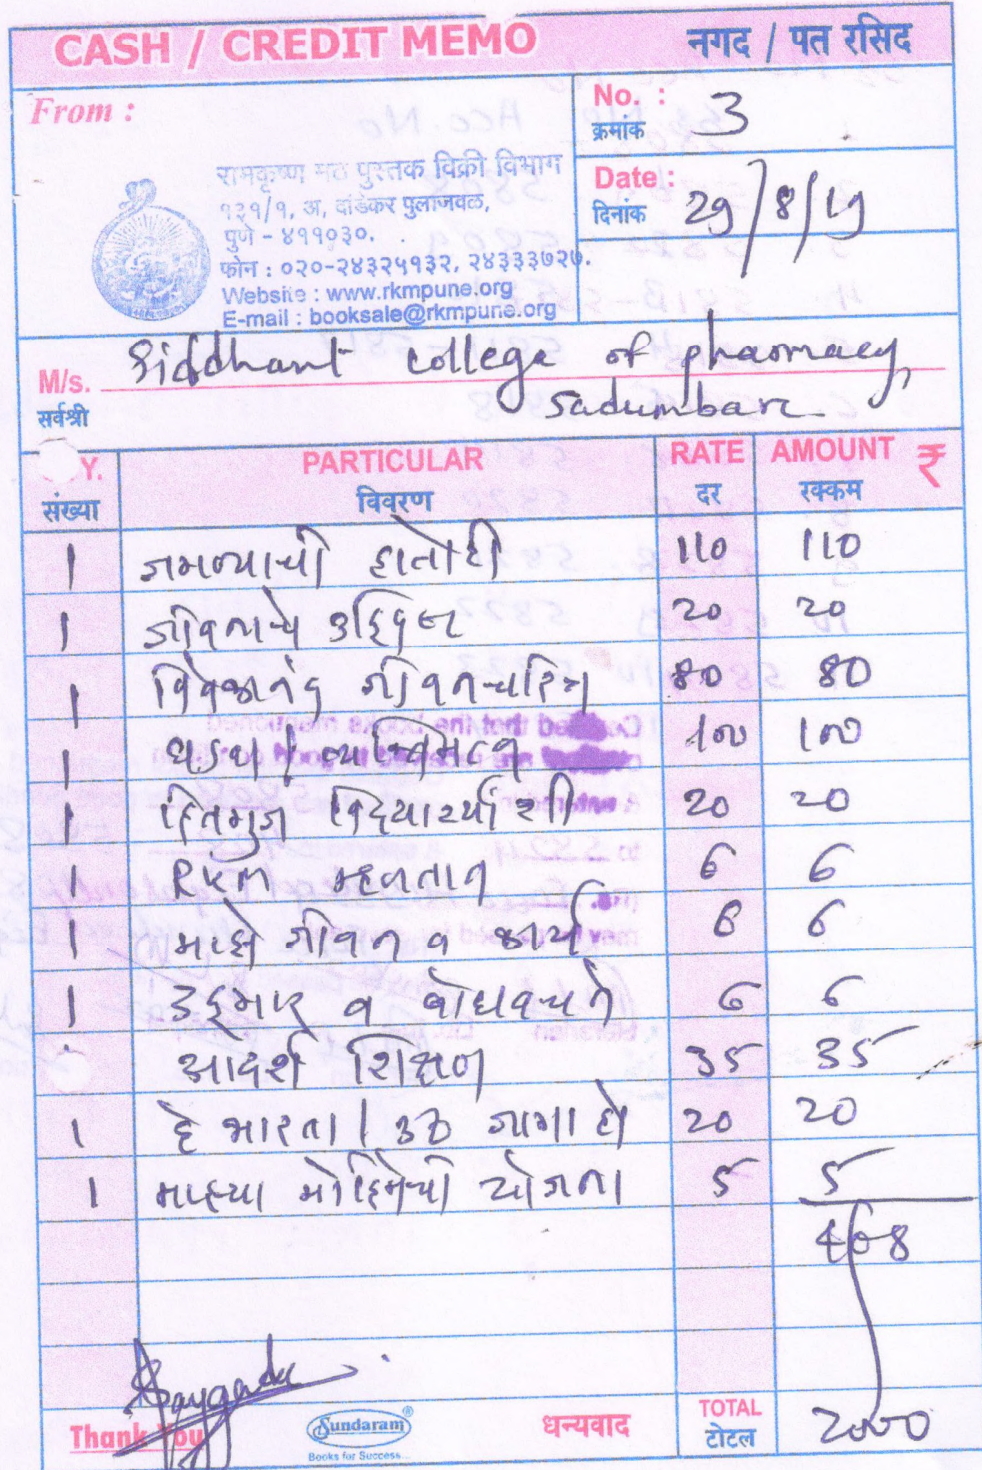 CASH / CREDIT MEMO नगद / पत रसिद
From :
No. : 3
क्रमांक
रामकृष्ण मठ पुस्तक विक्री विभाग
१३१/१, अ, दांडेकर पुलाजवळ,
पुणे - ४११०३०.
फोन : ०२०-२४३२५१३२, २४३३३७२७.
Website : www.rkmpune.org
E-mail : booksale@rkmpune.org
Date : 29/8/19
दिनांक
M/s. Siddhant college of pharmacy,
सर्वश्री Sadumbare
Y. PARTICULAR RATE AMOUNT ₹
संख्या विवरण दर रक्कम
1 जगण्याची हातोटी 110 110
1 जीवनाचे उद्दिष्ट 20 20
1 विवेकानंद जीवनचरित्र 80 80
1 100 100
1 हितगुज विद्यार्थ्यांशी 20 20
1 RKM म्हणतात 6 6
1 माझे जीवन व कार्य 6 6
1 व बोधवचने 6 6
आदर्श शिक्षण 35 35
1 हे भारता! उठ जागा हो 20 20
1 माझ्या मोहिमेची योजना 5 5
408
Thank You
Sundaram
Books for Success...
धन्यवाद
TOTAL 2000
टोटल